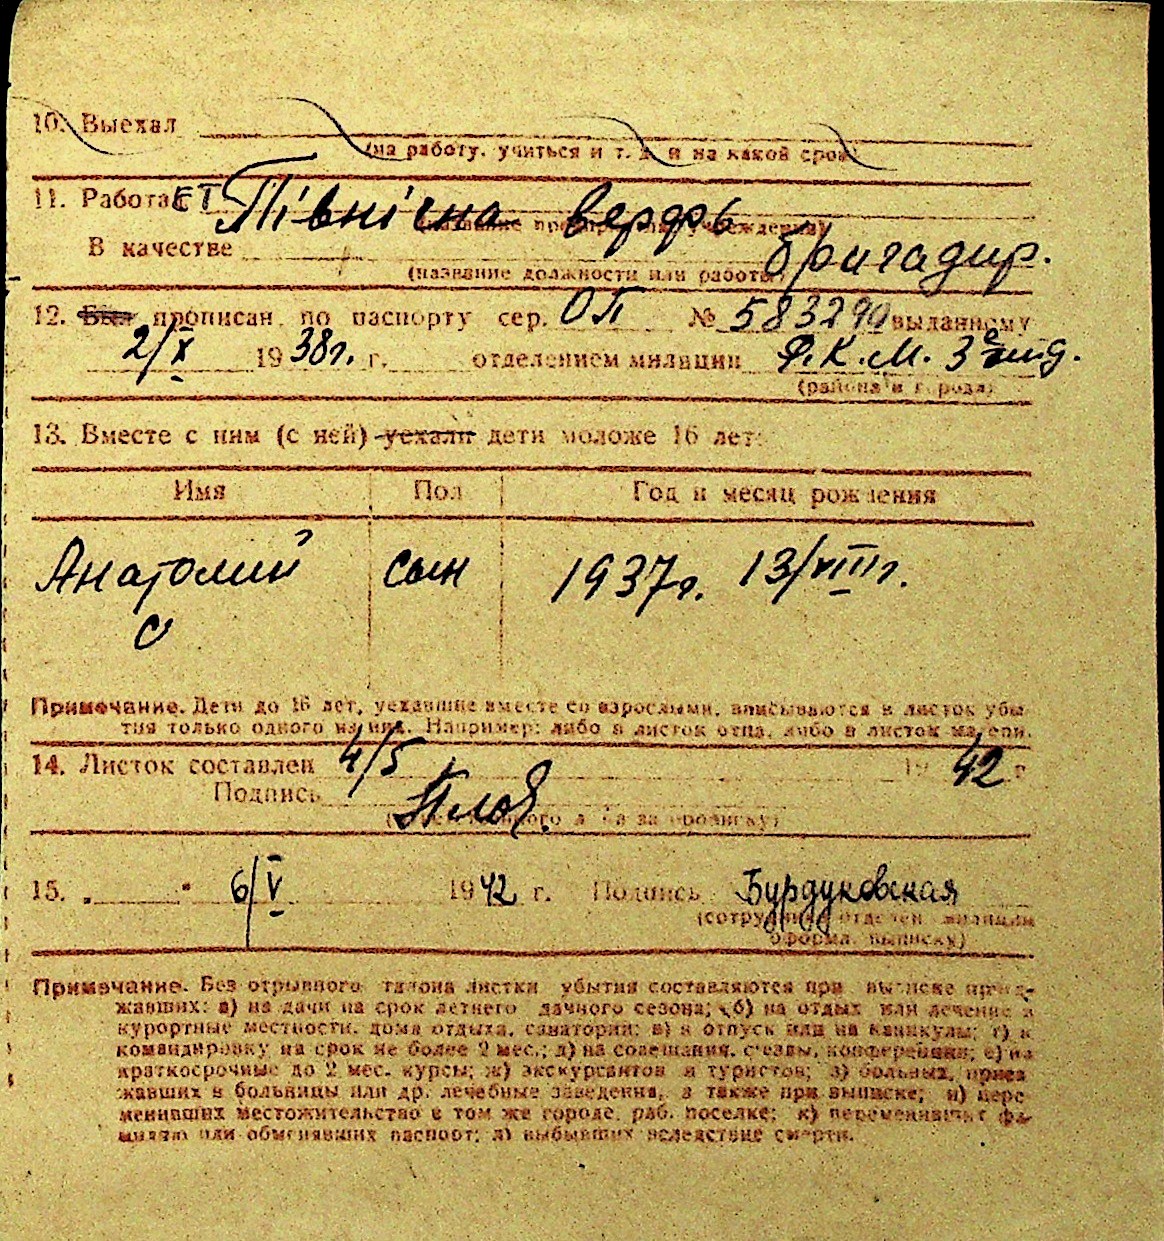 10. Выехал
(на работу, учиться и т. д. и на какой срок)
11. Работает Північна верфь
(название предприятия, учреждения)
В качестве бригадир.
(название должности или работы)
12. Был прописан по паспорту сер. ОП № 583290 выданному
2/X 1938г. г. отделением милиции Ф.К.М.
(района и города)
13. Вместе с ним (с ней) уехали дети моложе 16 лет:
Имя Пол Год и месяц рождения
Анатолий сын 1937г. 13/VIII г.
Примечание. Дети до 16 лет, уехавшие вместе со взрослыми, вписываются в листок убы
тия только одного из них. Например: либо в листок отца, либо в листок матери.
14. Листок составлен 4/5 1942 г
Подпись
(ответственного л ца за прописку)
15. „ " 6/V 1942 г. Подпись Бурдуковская
(сотрудник отделен. милиции
оформл. выписку)
Примечание. Без отрывного талона листки убытия составляются при выписке приез-
жавших: а) на дачи на срок летнего дачного сезона; б) на отдых или лечение в
курортные местности, дома отдыха, санатории; в) в отпуск или на каникулы; г) в
командировку на срок не более 2 мес.; д) на совещания, с'езды, конференции; е) на
краткосрочные до 2 мес. курсы; ж) экскурсантов и туристов; з) больных, приез
жавших в больницы или др. лечебные заведения, а также при выписке; и) пере
менивших местожительство в том же городе, раб. поселке; к) переменивших фа-
милию или обменявших паспорт; л) выбывших вследствие смерти.